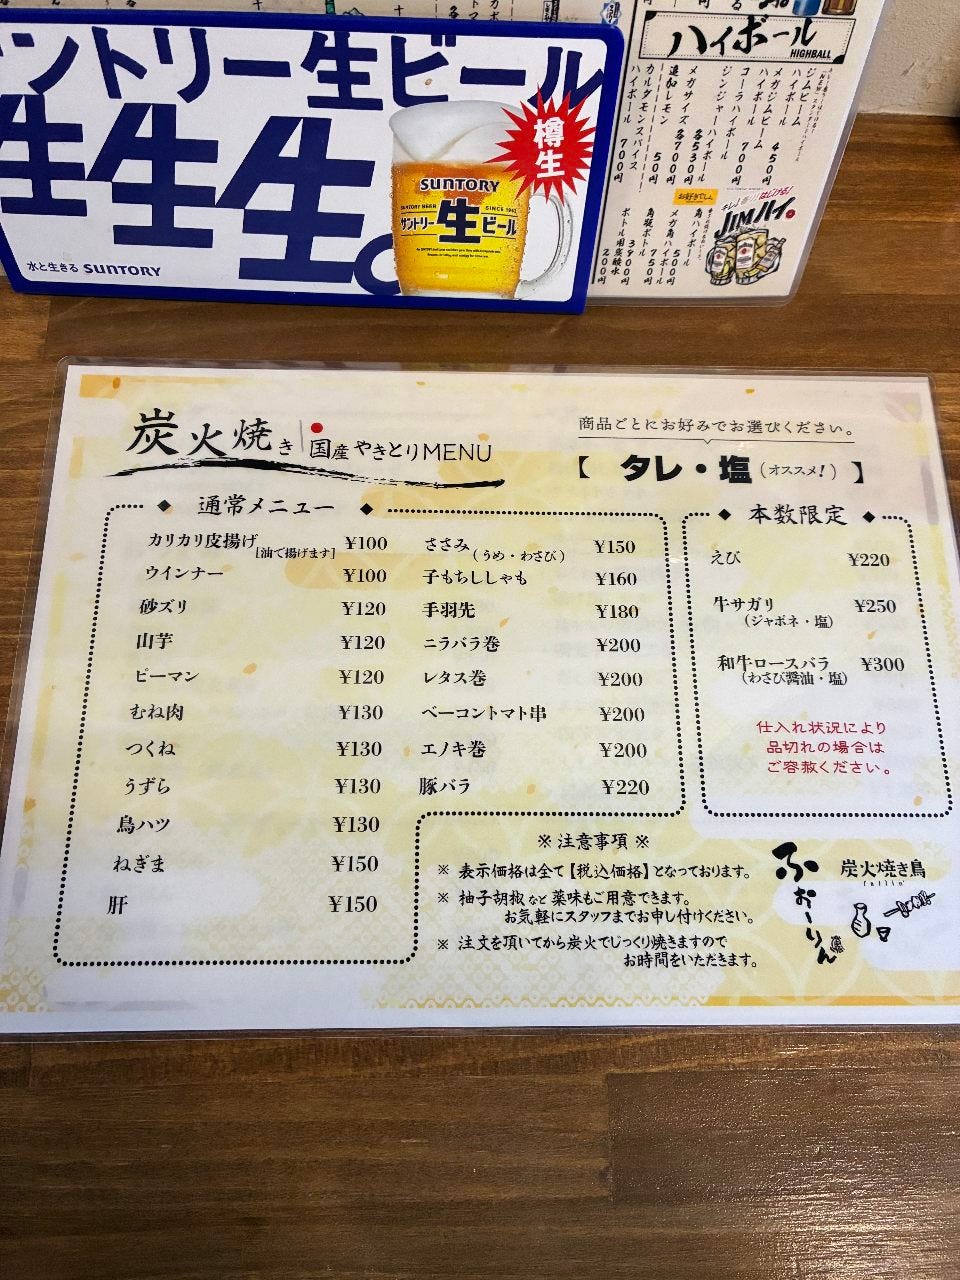 ントリー生ビール
生生生。
樽生
SUNTORY
SUNTORY BEER SINCE 1963
サントリー生ビール
水と生きる SUNTORY
ハイボール
HIGHBALL
ジムビーム
ハイボール 450円
メガジムビーム
ハイボール 700円
コーラハイボール
ジンジャーハイボール
各530円
メガサイズ 各700円
追加レモン 50円
カルダモンスパイス
ハイボール 700円
お好きでしょ
角ハイボール 500円
メガ角ハイボール 750円
角瓶ボトル 3900円
ボトル用炭酸水 200円
JIMハイ。
炭火焼き 国産やきとりMENU
商品ごとにお好みでお選びください。
【 タレ・塩(オススメ!) 】
◆ 通常メニュー ◆
カリカリ皮揚げ[油で揚げます] ¥100
ウインナー ¥100
砂ズリ ¥120
山芋 ¥120
ピーマン ¥120
むね肉 ¥130
つくね ¥130
うずら ¥130
鳥ハツ ¥130
ねぎま ¥150
肝 ¥150
ささみ(うめ・わさび) ¥150
子もちししゃも ¥160
手羽先 ¥180
ニラバラ巻 ¥200
レタス巻 ¥200
ベーコントマト串 ¥200
エノキ巻 ¥200
豚バラ ¥220
◆ 本数限定 ◆
えび ¥220
牛サガリ ¥250
(ジャポネ・塩)
和牛ロースバラ ¥300
(わさび醤油・塩)
仕入れ状況により
品切れの場合は
ご容赦ください。
※ 注意事項 ※
※ 表示価格は全て【税込価格】となっております。
※ 柚子胡椒など薬味もご用意できます。
お気軽にスタッフまでお申し付けください。
※ 注文を頂いてから炭火でじっくり焼きますので
お時間をいただきます。
ふぉーりん
炭火焼き鳥